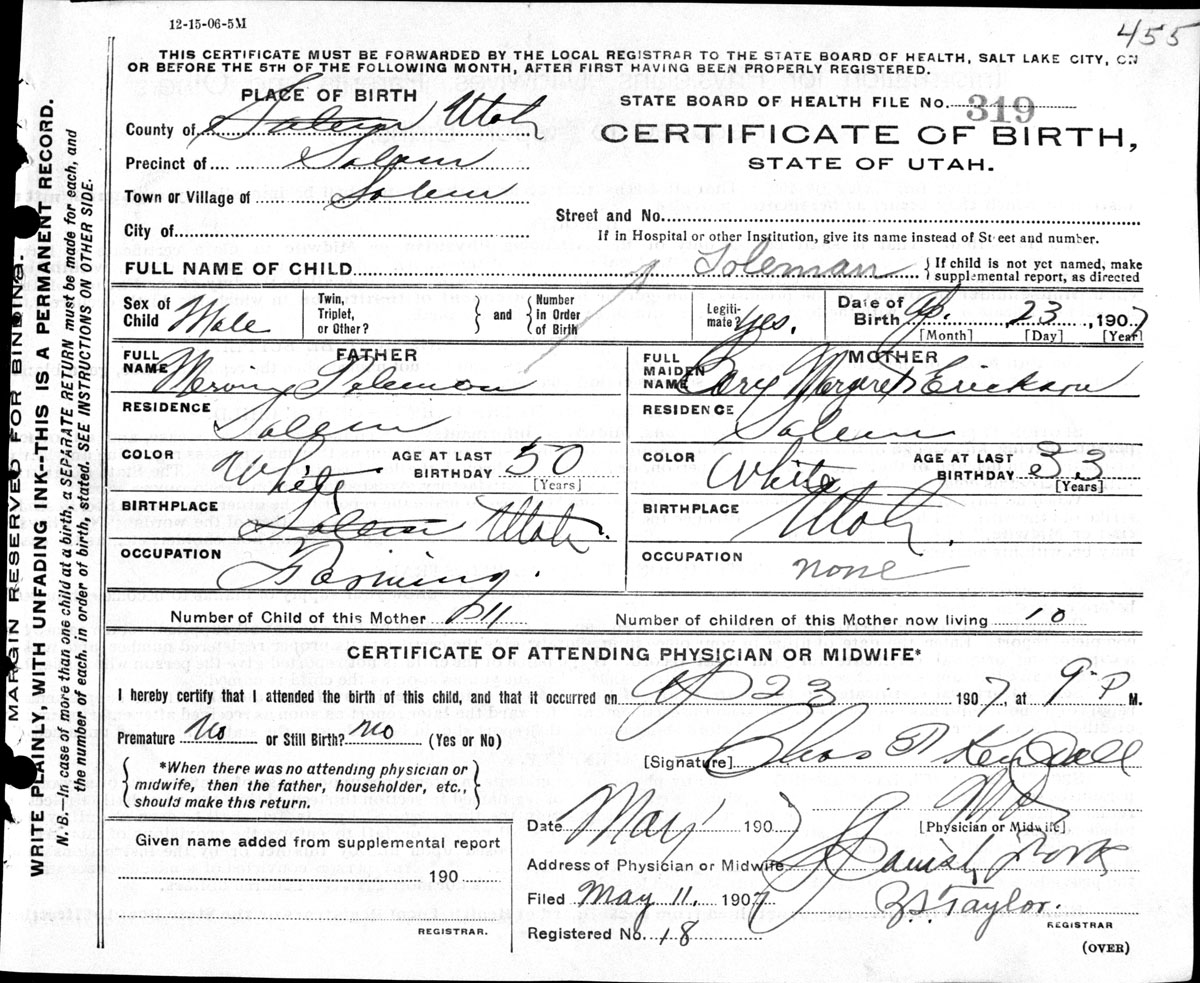 12-15-06-5M
455
THIS CERTIFICATE MUST BE FORWARDED BY THE LOCAL REGISTRAR TO THE STATE BOARD OF HEALTH, SALT LAKE CITY, ON
OR BEFORE THE 5TH OF THE FOLLOWING MONTH, AFTER FIRST HAVING BEEN PROPERLY REGISTERED.
PLACE OF BIRTH
STATE BOARD OF HEALTH FILE NO. 319
County of Salem Utah
CERTIFICATE OF BIRTH,
STATE OF UTAH.
Precinct of Salem
Town or Village of Salem
Street and No.
City of
If in Hospital or other Institution, give its name instead of Street and number.
FULL NAME OF CHILD Soleman { If child is not yet named, make supplemental report, as directed
Sex of Child Male
Twin, Triplet, or Other? } and { Number in Order of Birth
Legitimate? Yes.
Date of Birth Ap. 23, 1907
[Month] [Day] [Year]
FATHER
FULL NAME Solemon
RESIDENCE Salem
COLOR White AGE AT LAST BIRTHDAY 50
[Years]
BIRTHPLACE Salem Utah.
OCCUPATION Farming.
MOTHER
FULL MAIDEN NAME Margaret Erickson
RESIDENCE Salem
COLOR White AGE AT LAST BIRTHDAY 33
[Years]
BIRTHPLACE Utah.
OCCUPATION none
Number of Child of this Mother 11
Number of children of this Mother now living 10
CERTIFICATE OF ATTENDING PHYSICIAN OR MIDWIFE*
I hereby certify that I attended the birth of this child, and that it occurred on Ap 23 1907, at 9 P M.
Premature No or Still Birth? No (Yes or No)
[Signature] Chas
MD
[Physician or Midwife]
*When there was no attending physician or
midwife, then the father, householder, etc.,
should make this return.
Date May 190
Address of Physician or Midwife Spanish Fork
Given name added from supplemental report
190
REGISTRAR.
Filed May 11, 1907
Taylor.
REGISTRAR
Registered No. 18
(OVER)
MARGIN RESERVED FOR BINDING.
WRITE PLAINLY WITH UNFADING INK--THIS IS A PERMANENT RECORD.
N. B.--In case of more than one child at a birth, a SEPARATE RETURN must be made for each, and
the number of each, in order of birth, stated. SEE INSTRUCTIONS ON OTHER SIDE.